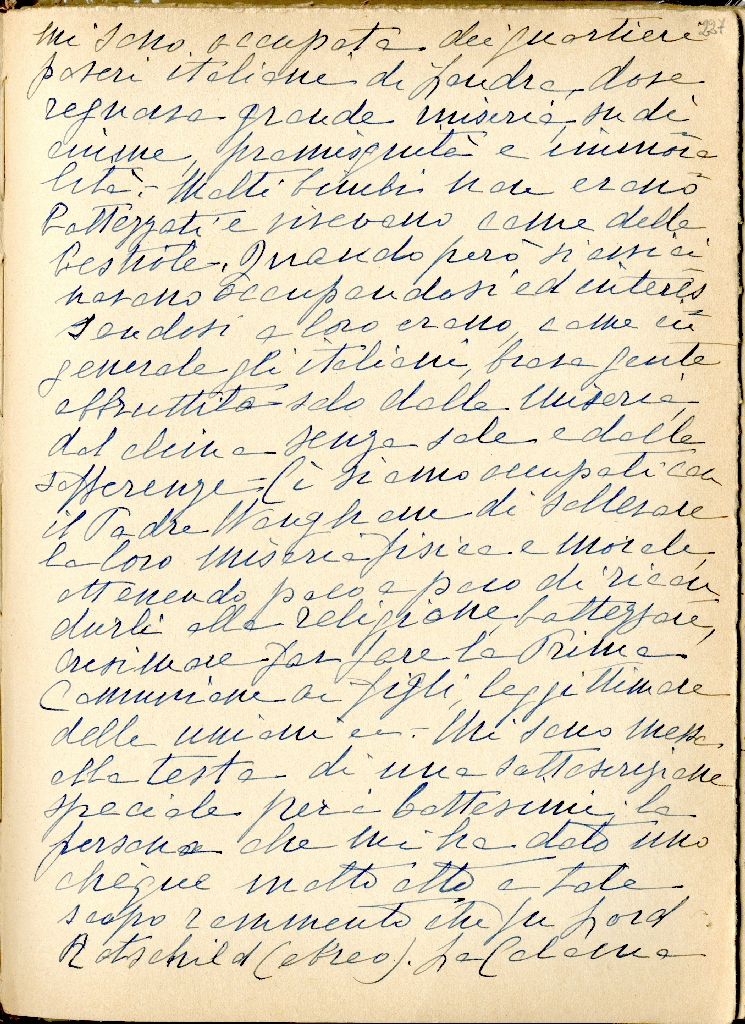 237
mi sono occupata dei quartieri
poveri italiani di Londra, dove
regnava grande miseria, sudi
ciume, promisquità e immora
lità.- Molti bimbi non erano
battezzati e vivevano come delle
bestiole. Quando però si avvici
navano occupandosi ed interes
sandosi a loro erano, come in
generale gli italiani, brava gente
abbruttita solo dalla miseria,
dal clima senza sole e dalle
sofferenze - Ci siamo occupati con
il Padre Vanghan di sollevare
la loro miseria fisica e morale,
ottenendo poco a poco di ricon
durli alla religione, battezzare,
cresimare far fare la Prima
Comunione ai figli, leggittimare
delle unioni ec.- Mi sono messa
alla testa di una sottoscrizione
speciale per i battesimi; la
persona che mi ha dato uno
chèque molto alto a tale
scopo rammento che fu Lord
Rotschild (ebreo). La Colonia